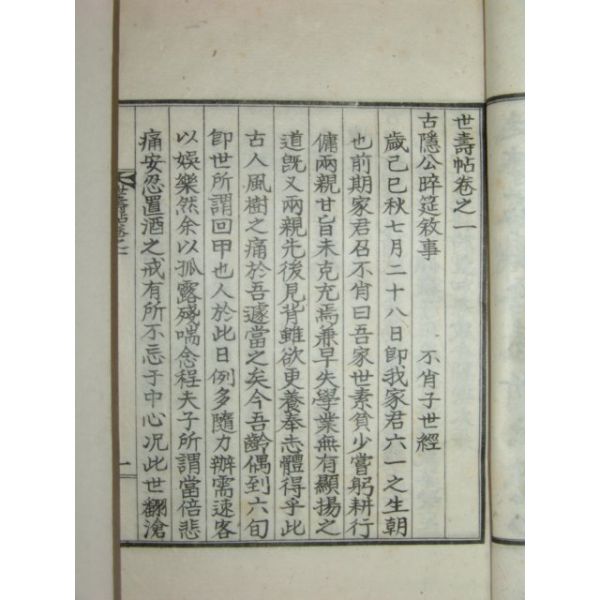 世壽帖卷之一
古隱公晬筵敘事 不肖子世經
歲己巳秋七月二十八日即我家君六一之生朝
也前期家君召不肖曰吾家世素貧少嘗躬耕行
傭兩親甘旨未克充焉兼早失學業無有顯揚之
道旣又兩親先後見背雖欲更養奉志體得乎此
古人風樹之痛於吾遽當之矣今吾齡偶到六旬
即世所謂回甲也人於此日例多隨力辦需速客
以娛樂然余以孤露殘喘念程夫子所謂當倍悲
痛安忍置酒之戒有所不忘于中心况此世翻滄
世壽帖卷之一
一